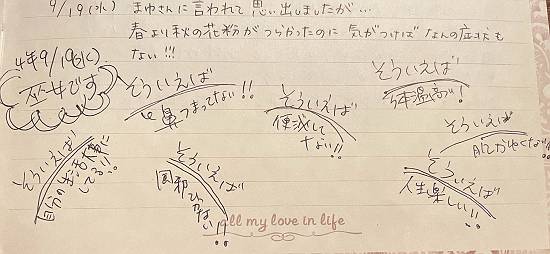 9/19(水)
まゆさんに言われて思い出しましたが…
春より秋の花粉がつらかったのに 気がつけばなんの症状も
ない!!!
4年9/19(水)
です
そういえば
鼻つまってない!!
そういえば
便
してない!!
そういえば
体温高い!
そういえば
かゆくない!!
そういえば
自分の
大事に
してる!!
そういえば
風邪ひかない!!
そういえば
人生楽しい!!
all my love in life